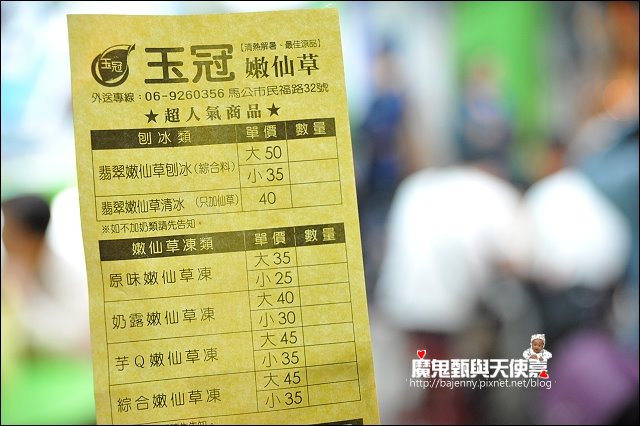 玉冠
玉冠
【清熱解暑、最佳涼品】
嫩仙草
外送專線：06-9260356 馬公市民福路32號
★超人氣商品★
刨冰類 單價 數量
翡翠嫩仙草刨冰(綜合料) 大50
小35
翡翠嫩仙草清冰 (只加仙草) 40
※如不加奶類請先告知。
嫩仙草凍類 單價 數量
原味嫩仙草凍 大35
小25
奶露嫩仙草凍 大40
小30
芋Q嫩仙草凍 大45
小35
綜合嫩仙草凍 大45
小35
魔鬼甄與天使嘉
http://bajenny.pixnet.net/blog